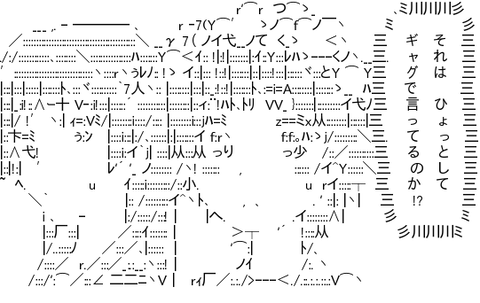 それは　ひょっとして
ギャグで言ってるのか!?